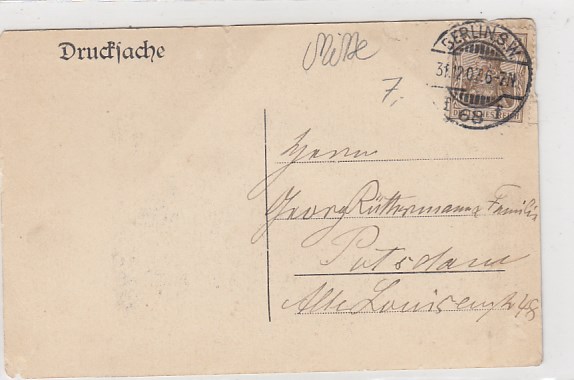 Drucksache
BERLIN S.W.
31.12.07. 6-7N.
f 68 f
7.
Herrn
Georg Rüttermann u Familie
Potsdam
Alte Louisenstr 48